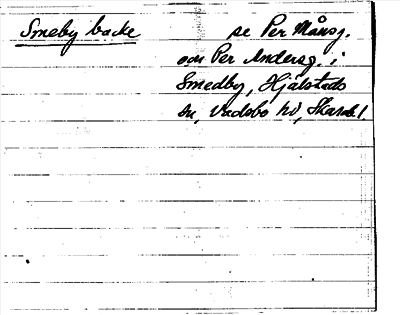 Smeby backe se Per Månsg.
och Per Andersg. i
Smedby, Hjälstads
sn, Vadsbo hd, Skarab. l.